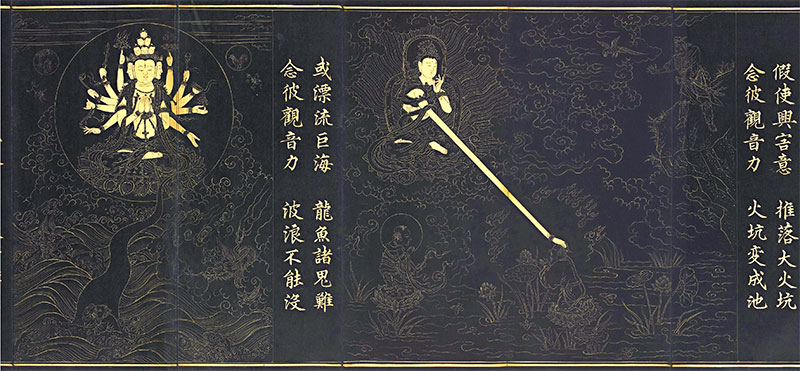 假使興害意　推落大火坑
念彼觀音力　火坑変成池
或漂流巨海　龍魚諸鬼難
念彼觀音力　波浪不能沒